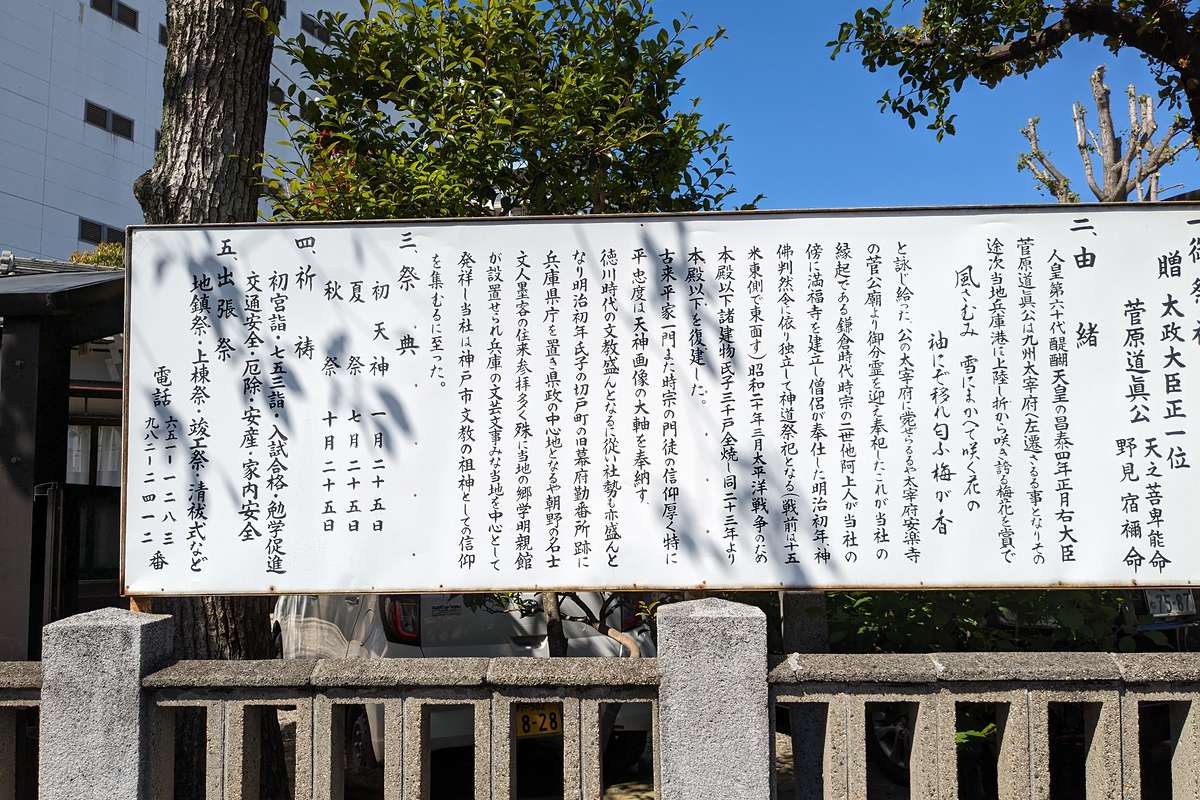 贈 太政大臣正一位
菅原道眞公
天之菩卑能命
野見宿禰命
二、由緒
人皇第六十代醍醐天皇の昌泰四年正月右大臣
菅原道眞公は九州太宰府へ左遷さるる事となりその
途次当地兵庫港に上陸し折から咲き誇る梅花を賞で
風さむみ 雪にまがへて咲く花の
袖にぞ移れ匂ふ梅が香
と詠じ給った公の太宰府に薨ぜらるるや太宰府安楽寺
の菅公廟より御分霊を迎え奉祀したこれが当社の
縁起である鎌倉時代時宗の二世他阿上人が当社の
傍に満福寺を建立し僧侶が奉仕した明治初年神
佛判然令に依り独立して神道祭祀となる(戦前は十五
米東側で東面す)昭和二十年三月太平洋戦争のため
本殿以下諸建物氏子三千戸全焼し同二十三年より
本殿以下を復建した。
古来平家一門また時宗の門徒の信仰厚く特に
平忠度は天神画像の大軸を奉納す
徳川時代の文教盛んとなるに従い社勢も亦盛んと
なり明治初年氏子の切戸町の旧幕府勤番所跡に
兵庫県庁を置き県政の中心地となるや朝野の名士
文人墨客の往来参拝多く殊に当地の郷学明親館
が設置せられ兵庫の文芸文事みな当地を中心として
発祥し当社は神戸市文教の祖神としての信仰
を集むるに至った。
三、祭典
初天神 一月二十五日
夏祭 七月二十五日
秋祭 十月二十五日
四、祈祷
初宮詣・七五三詣・入試合格・勉学促進
交通安全・厄除・安産・家内安全
五、出張祭
地鎮祭・上棟祭・竣工祭・清祓式など
電話 六五一-一二八三
九八二-二四一二 番
8-28
75-87